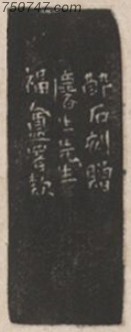 750747.com
醉后刻贈
先生
福盦署款